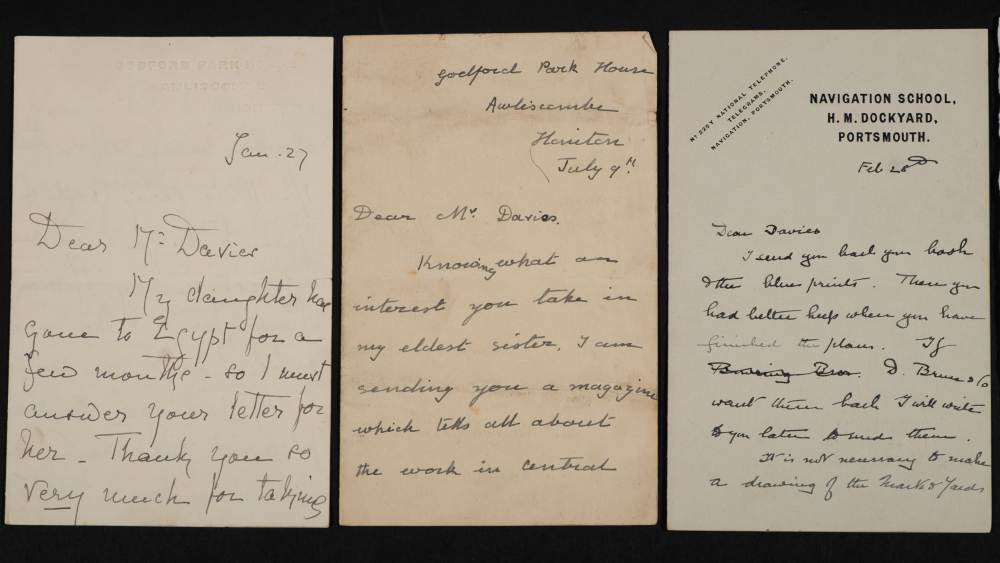 Jan. 27
Dear Mr. Davies
My daughter has
gone to Egypt for a
few months - so I must
answer your letter for
her - Thank you so
very much for taking
Godford Park House
Awliscombe
Honiton
July 9th
Dear Mr. Davies.
Knowing what an
interest you take in
my eldest sister, I am
sending you a magazine
which tells all about
the work in central
No 225Y NATIONAL TELEPHONE.
TELEGRAMS,
NAVIGATION, PORTSMOUTH.
NAVIGATION SCHOOL,
H. M. DOCKYARD,
PORTSMOUTH.
Feb 28th
Dear Davies
I send you back your book
& the blue prints. These you
had better keep when you have
finished the plans. If
D. Bruce & Co
want them back I will write
to you later to send them.
It is not necessary to make
a drawing of the Masts & Yards